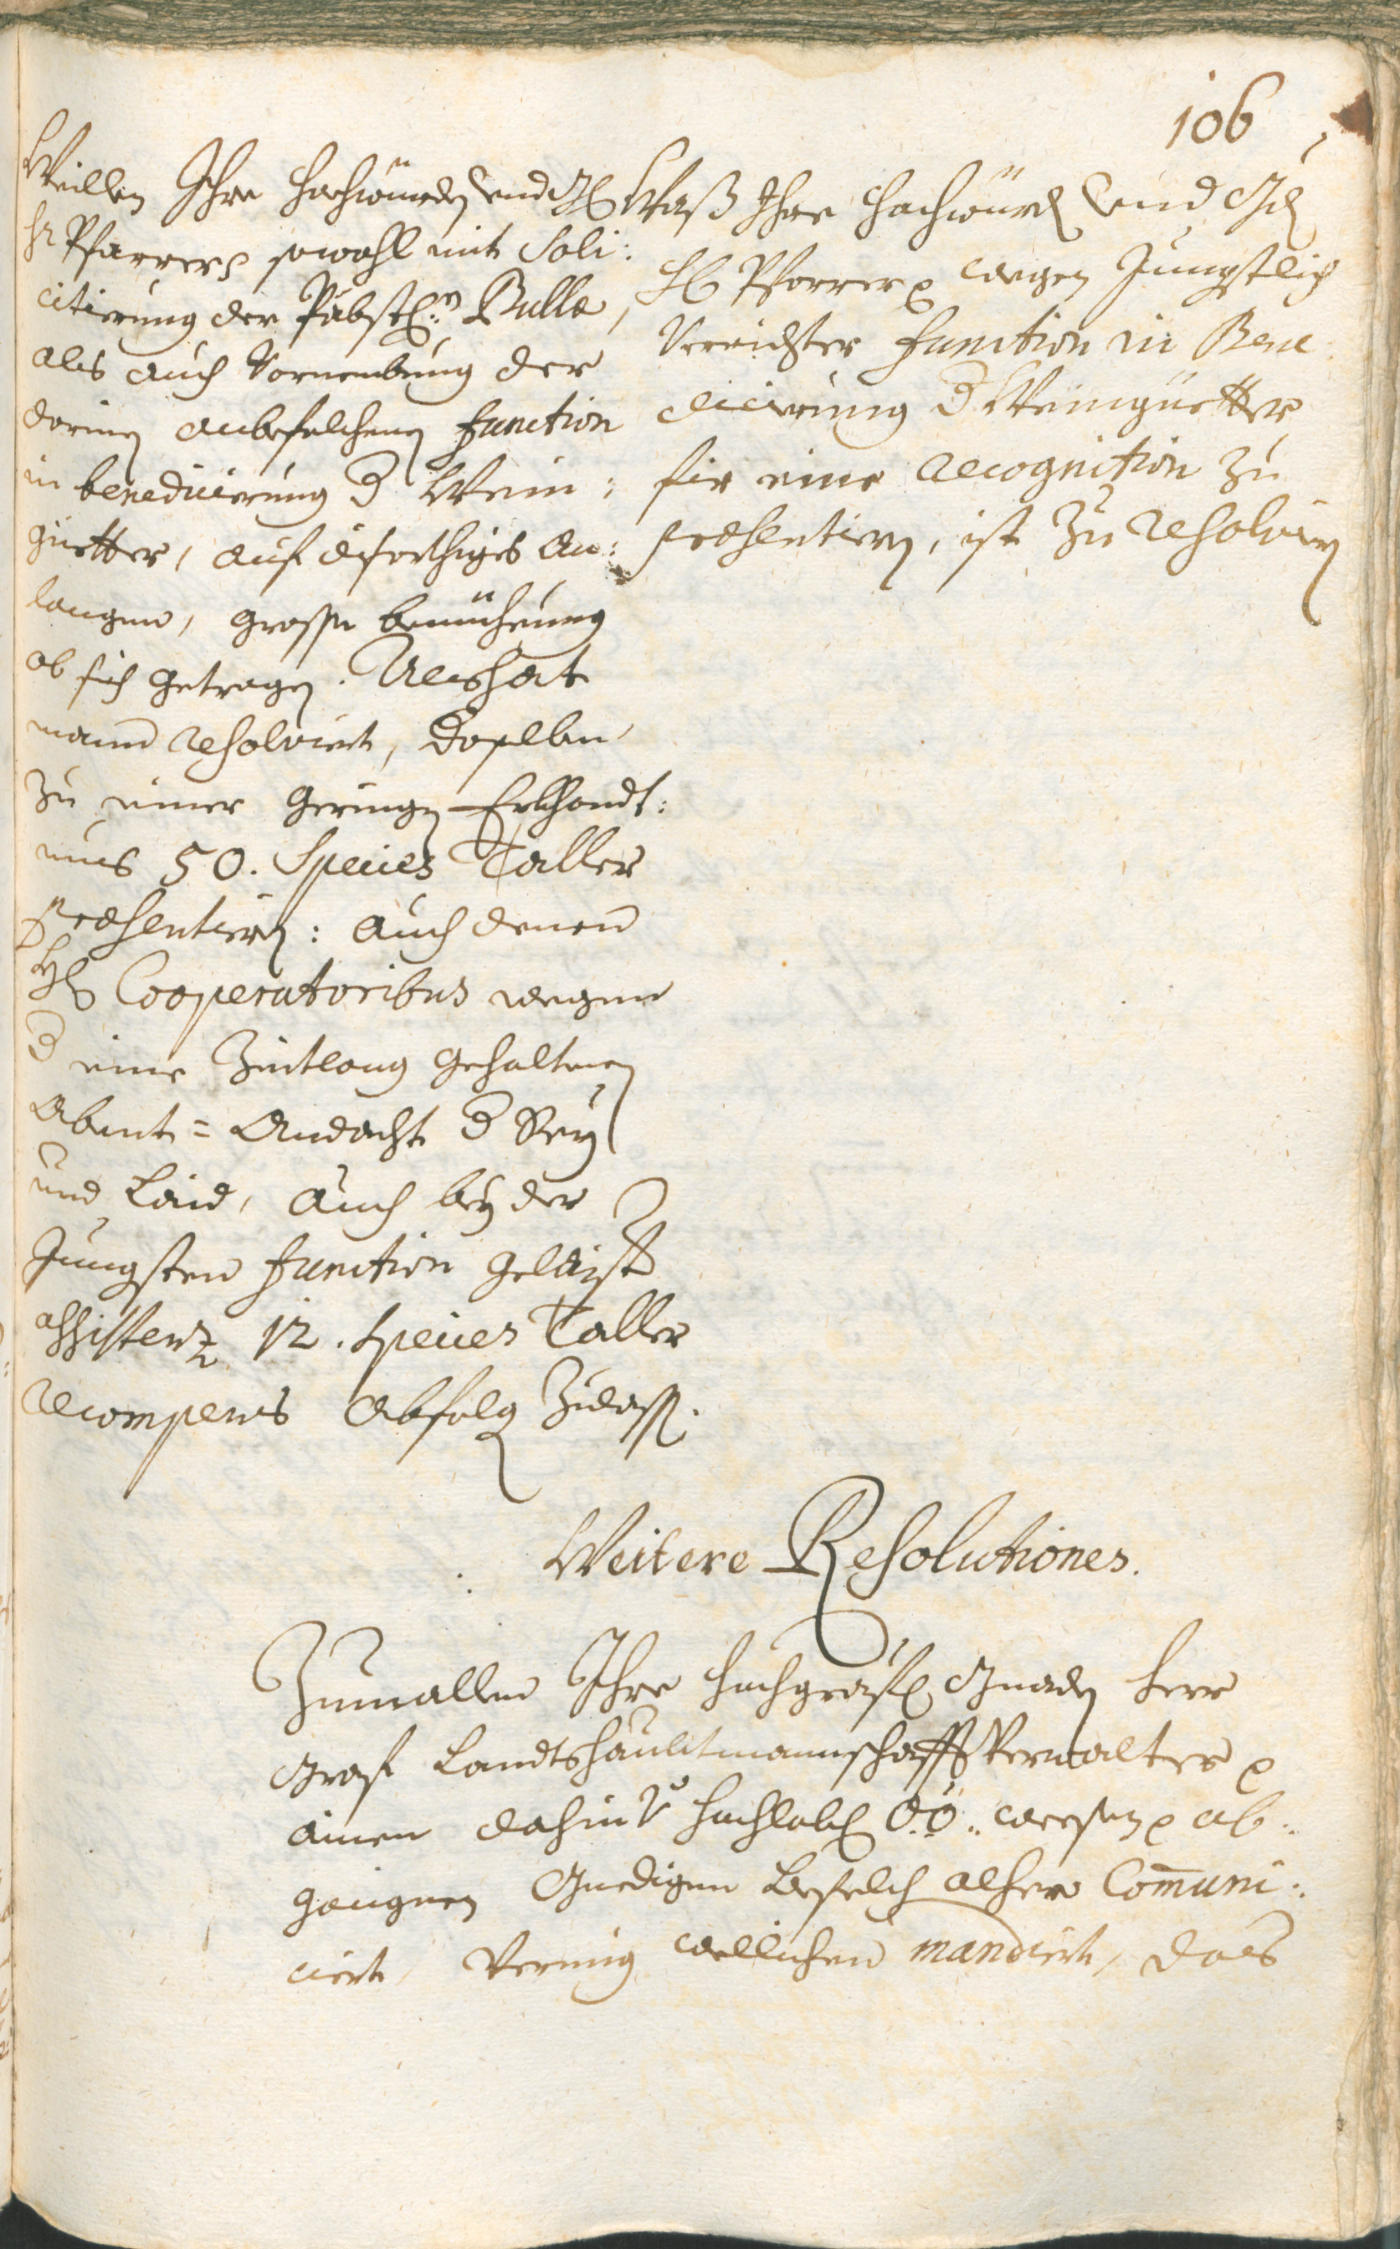 106
Weillen Ihre Hochwürden und Gl
Hr Pfarrer sowohl mit Soli:
citierung der Päbstl:n Bulla,
als auch Vornembung der
darinen anbefelchenen function
in benedicierung d Wein:
güetter, auf disorthiges An:
langen, grosse bemüehung
ob sich getragen. Alls hat
mann resolviert, Deselben
zu einer geringen Erkhandt:
nus 50. Species Taller
præsentieren: auch denen
Hl Cooperatoribus wegen
d eine Zeitlang gehaltnen
Abent=Andacht d Rey
und Laid, auch bey der
Jungsten function gelaist
assistenz 12. Species Taller
recompens abfolg zulassen.
Waß Ihre Hochwürd und Gd
Hl Pfarrer wegen Jungstlich
Verrichter function in Bene
dicierung d Weingüetter
für eine recognition zu
præsentieren, ist zu resolvieren
Weitere Resolutiones.
Zumallen Ihre Hochgräfl Gnaden Herr
Graf Landtshaubtmannschafft Verwalter
ainen dahin V Hochlobl O:Ö: weesen ab:
gangnen Gnedigen Befelch alhero Com̄uni:
ciert, Vermüg wellichen mandiert, das